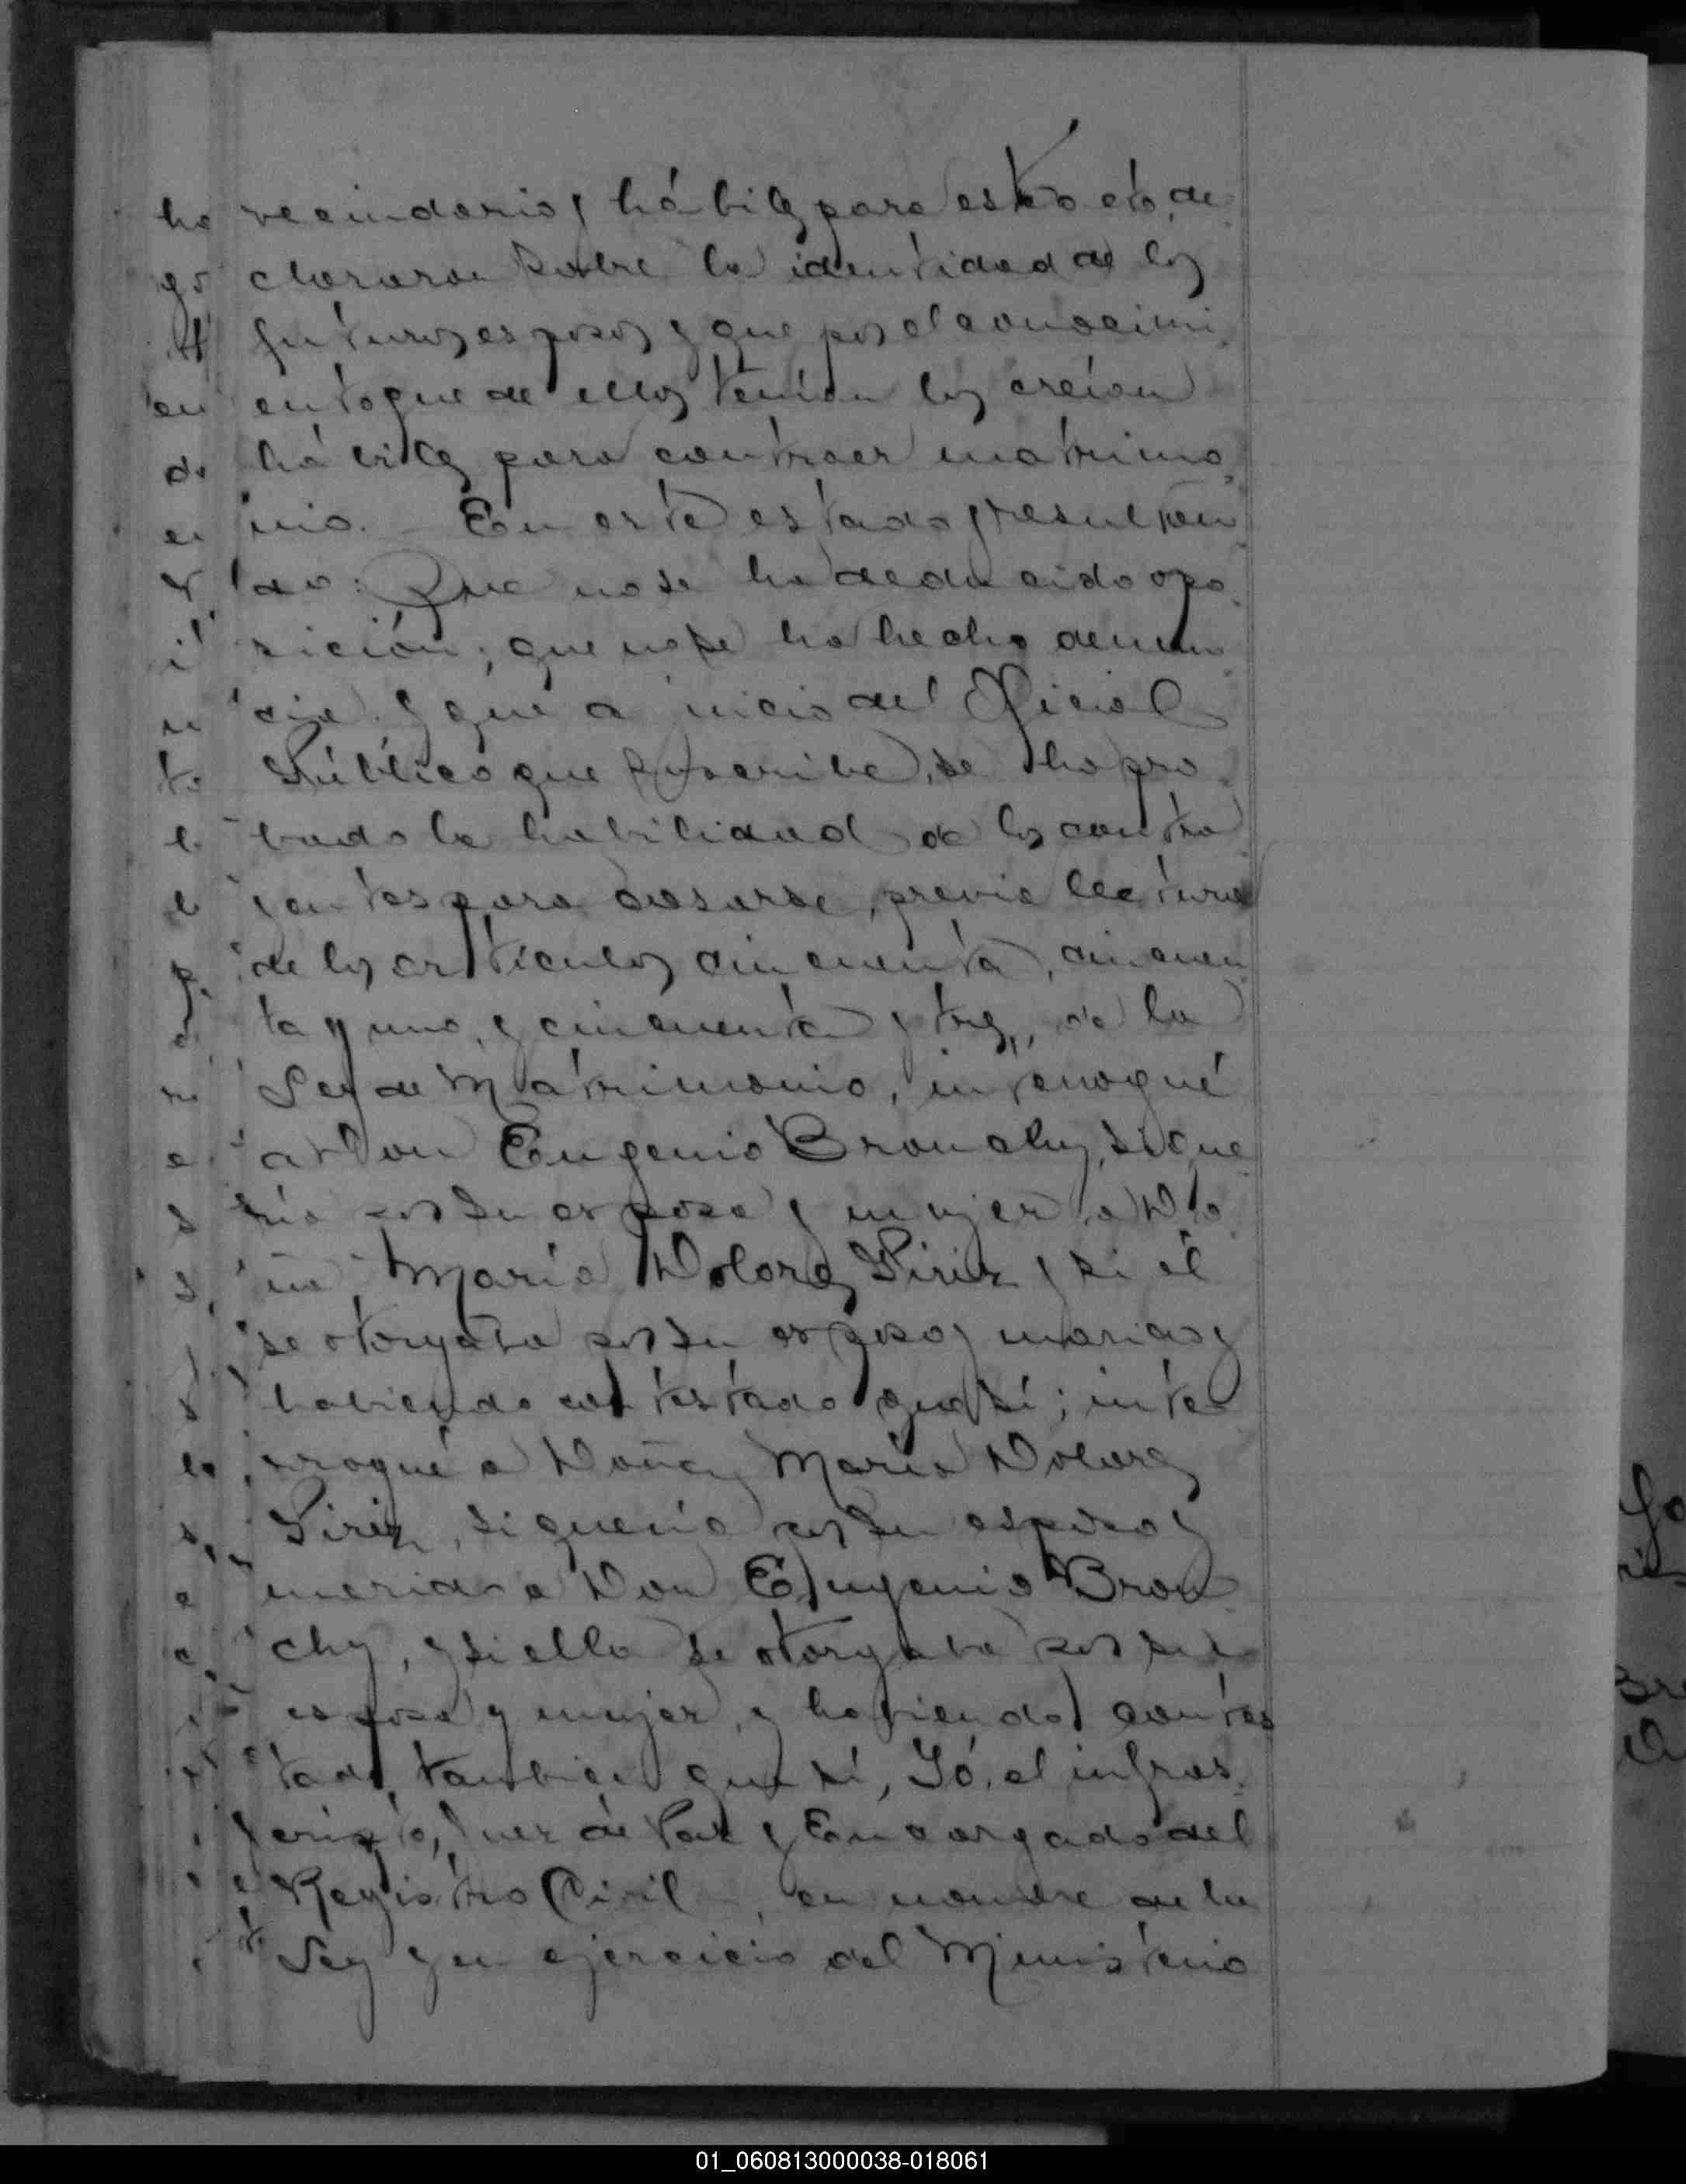 vecindario y hábiles para este acto, de
clararon sobre la identidad de los
futuros esposos y que por el conocimi
ento que de ellos tenían los creían
hábiles para contraer matrimo
nio. En este estado y resultan
do: Que no se ha deducido opo
sición; que no se ha hecho denun
cia y que a juicio del Oficial
Público que suscribe, se ha pro
bado la habilidad de los contra
yentes para casarse, previa lectura
de los artículos cincuenta, cincuen
ta y uno, y cincuenta y tres, de la
Ley de Matrimonio, interrogué
a Don Eugenio Bronchy, si que
ría por su esposa y mujer a Do
ña María Dolores Piriz y si él
se otorgaba por su esposo y marido y
habiendo contestado que sí; inte
rrogué a Doña María Dolores
Piriz, si quería por su esposo y
marido a Don Eugenio Bron
chy, y si ella se otorgaba por su
esposa y mujer, y habiendo contes
tado también que sí, Yó, el infras
cripto, Juez de Paz y Encargado del
Registro Civil, en nombre de la
Ley y en ejercicio del Ministerio
01_060813000038-018061